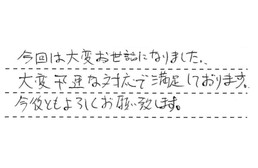 今回は大変お世話になりました。
大変迅速な対応で満足しております。
今後ともよろしくお願い致します。